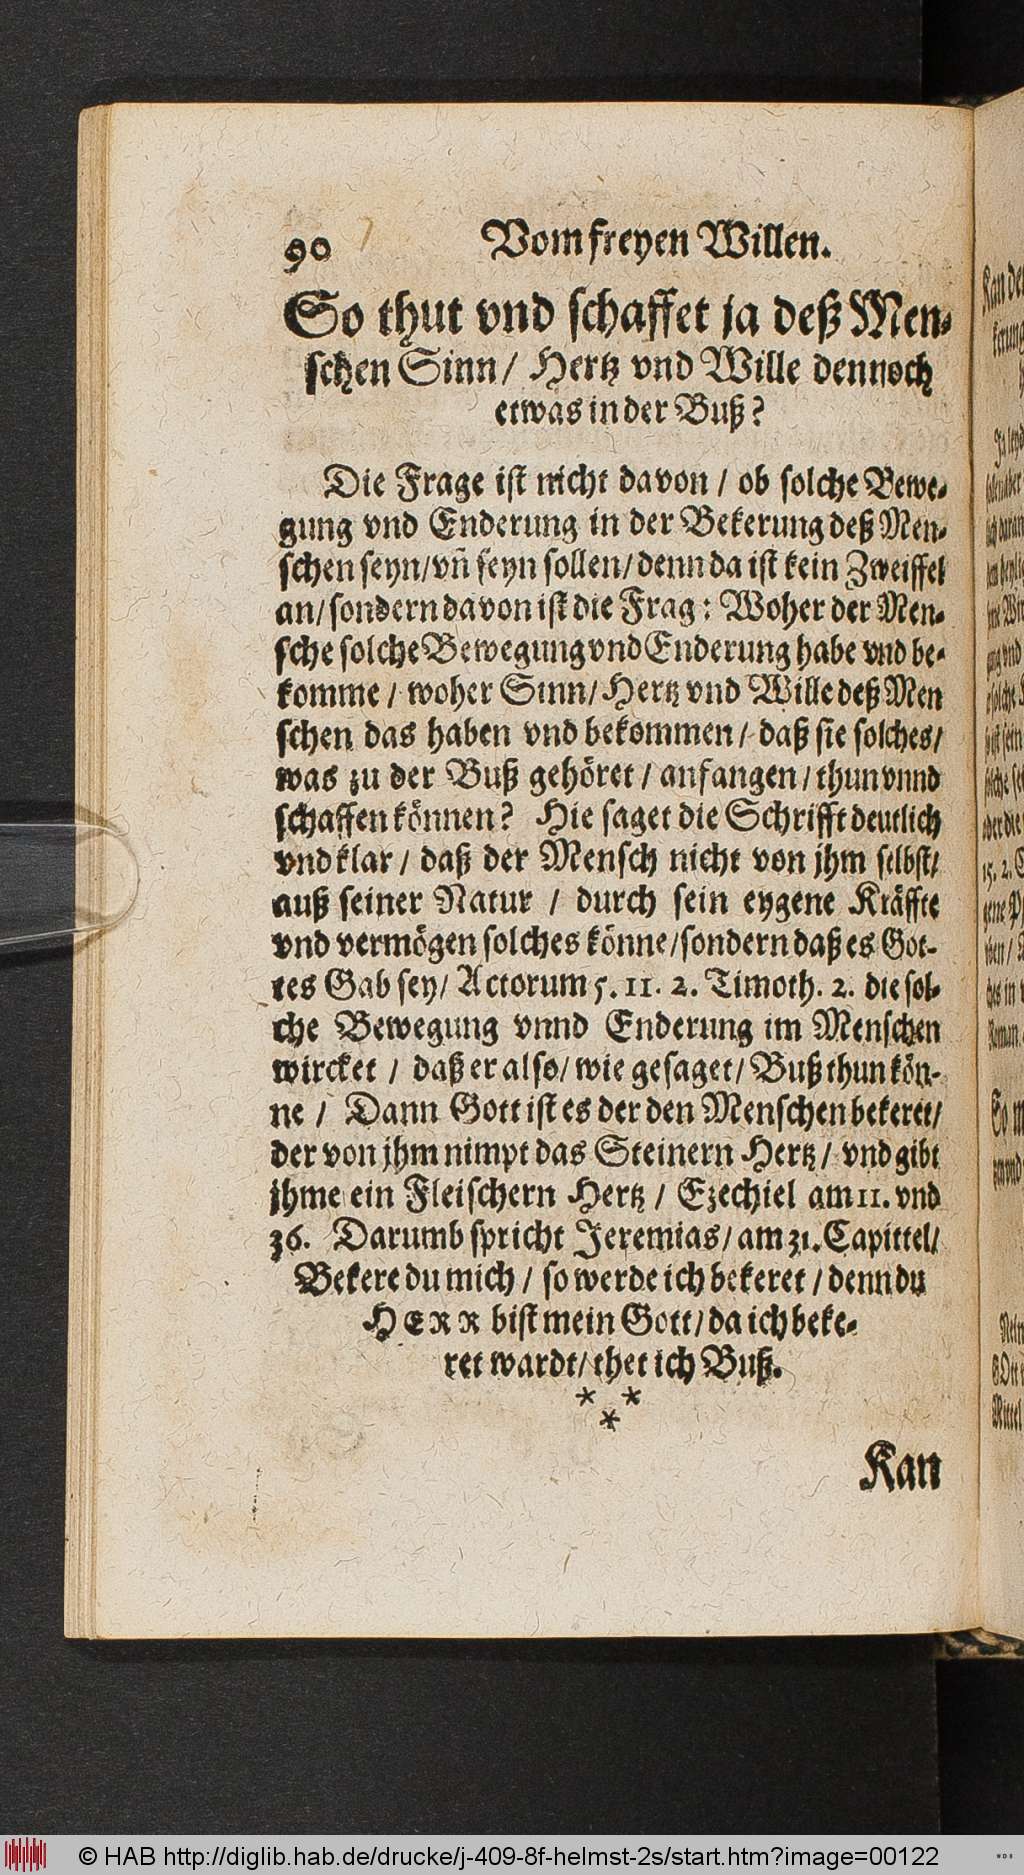 90 Vom freyen Willen.
So thut vnd schaffet ja deß Men-
schen Sinn / Hertz vnd Wille dennoch
etwas in der Buß?
Die Frage ist nicht davon / ob solche Bewe-
gung vnd Enderung in der Bekerung deß Men-
schen seyn/vñ seyn sollen/denn da ist kein Zweiffel
an/sondern davon ist die Frag: Woher der Men-
sche solche Bewegung vnd Enderung habe vnd be-
komme / woher Sinn/Hertz vnd Wille deß Men
schen das haben vnd bekommen / daß sie solches/
was zu der Buß gehöret / anfangen / thun vnnd
schaffen können? Hie saget die Schrifft deutlich
vnd klar / daß der Mensch nicht von jhm selbst/
auß seiner Natur / durch sein eygene Kräffte
vnd vermögen solches könne/sondern daß es Got-
tes Gab sey/ Actorum 5. 11. 2. Timoth. 2. die sol-
che Bewegung vnnd Enderung im Menschen
wircket / daß er also/ wie gesaget/ Buß thun kön-
ne / Dann Gott ist es der den Menschen bekeret/
der von jhm nimpt das Steinern Hertz / vnd gibt
jhme ein Fleischern Hertz / Ezechiel am 11. vnd
36. Darumb spricht Jeremias/ am 31. Capittel/
Bekere du mich / so werde ich bekeret / denn du
HERR bist mein Gott/ da ich beke-
ret wardt/ thet ich Buß.
* *
*
Kan
© HAB http://diglib.hab.de/drucke/j-409-8f-helmst-2s/start.htm?image=00122